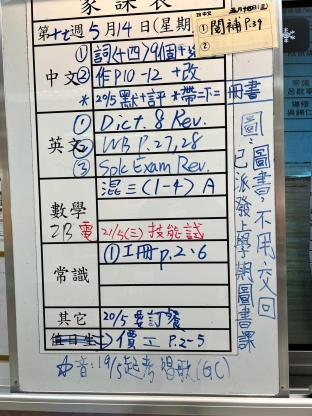 家課表
第十七週5月14日(星期
五月十四(三)
① 閱補 P.39
②
中文
① 詞(十四)9個+
② 作P10-12 +改
* 20/5默+評 *帶=下= 冊書
英文
① Dict. 8 Rev.
② WB P.27, 28
③ Spk Exam Rev.
數學
2B 電
混三(1-4) A
21/5(三) 技能試
常識
① 工冊 p.2-6
其它
20/5 要訂餐
值日生
價工 P.2-5
音:19/5起考唱歌(GC)
圖:圖書,不用交回
已派發上學期圖書課